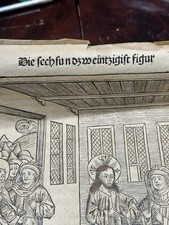 Die sechsundzweintzigist figur